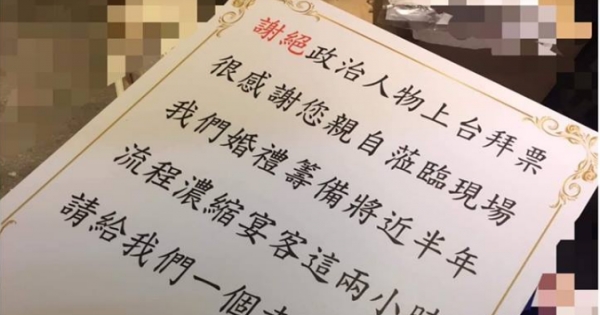 謝絕政治人物上台拜票
很感謝您親自蒞臨現場
我們婚禮籌備將近半年
流程濃縮宴客這兩小時
請給我們一個